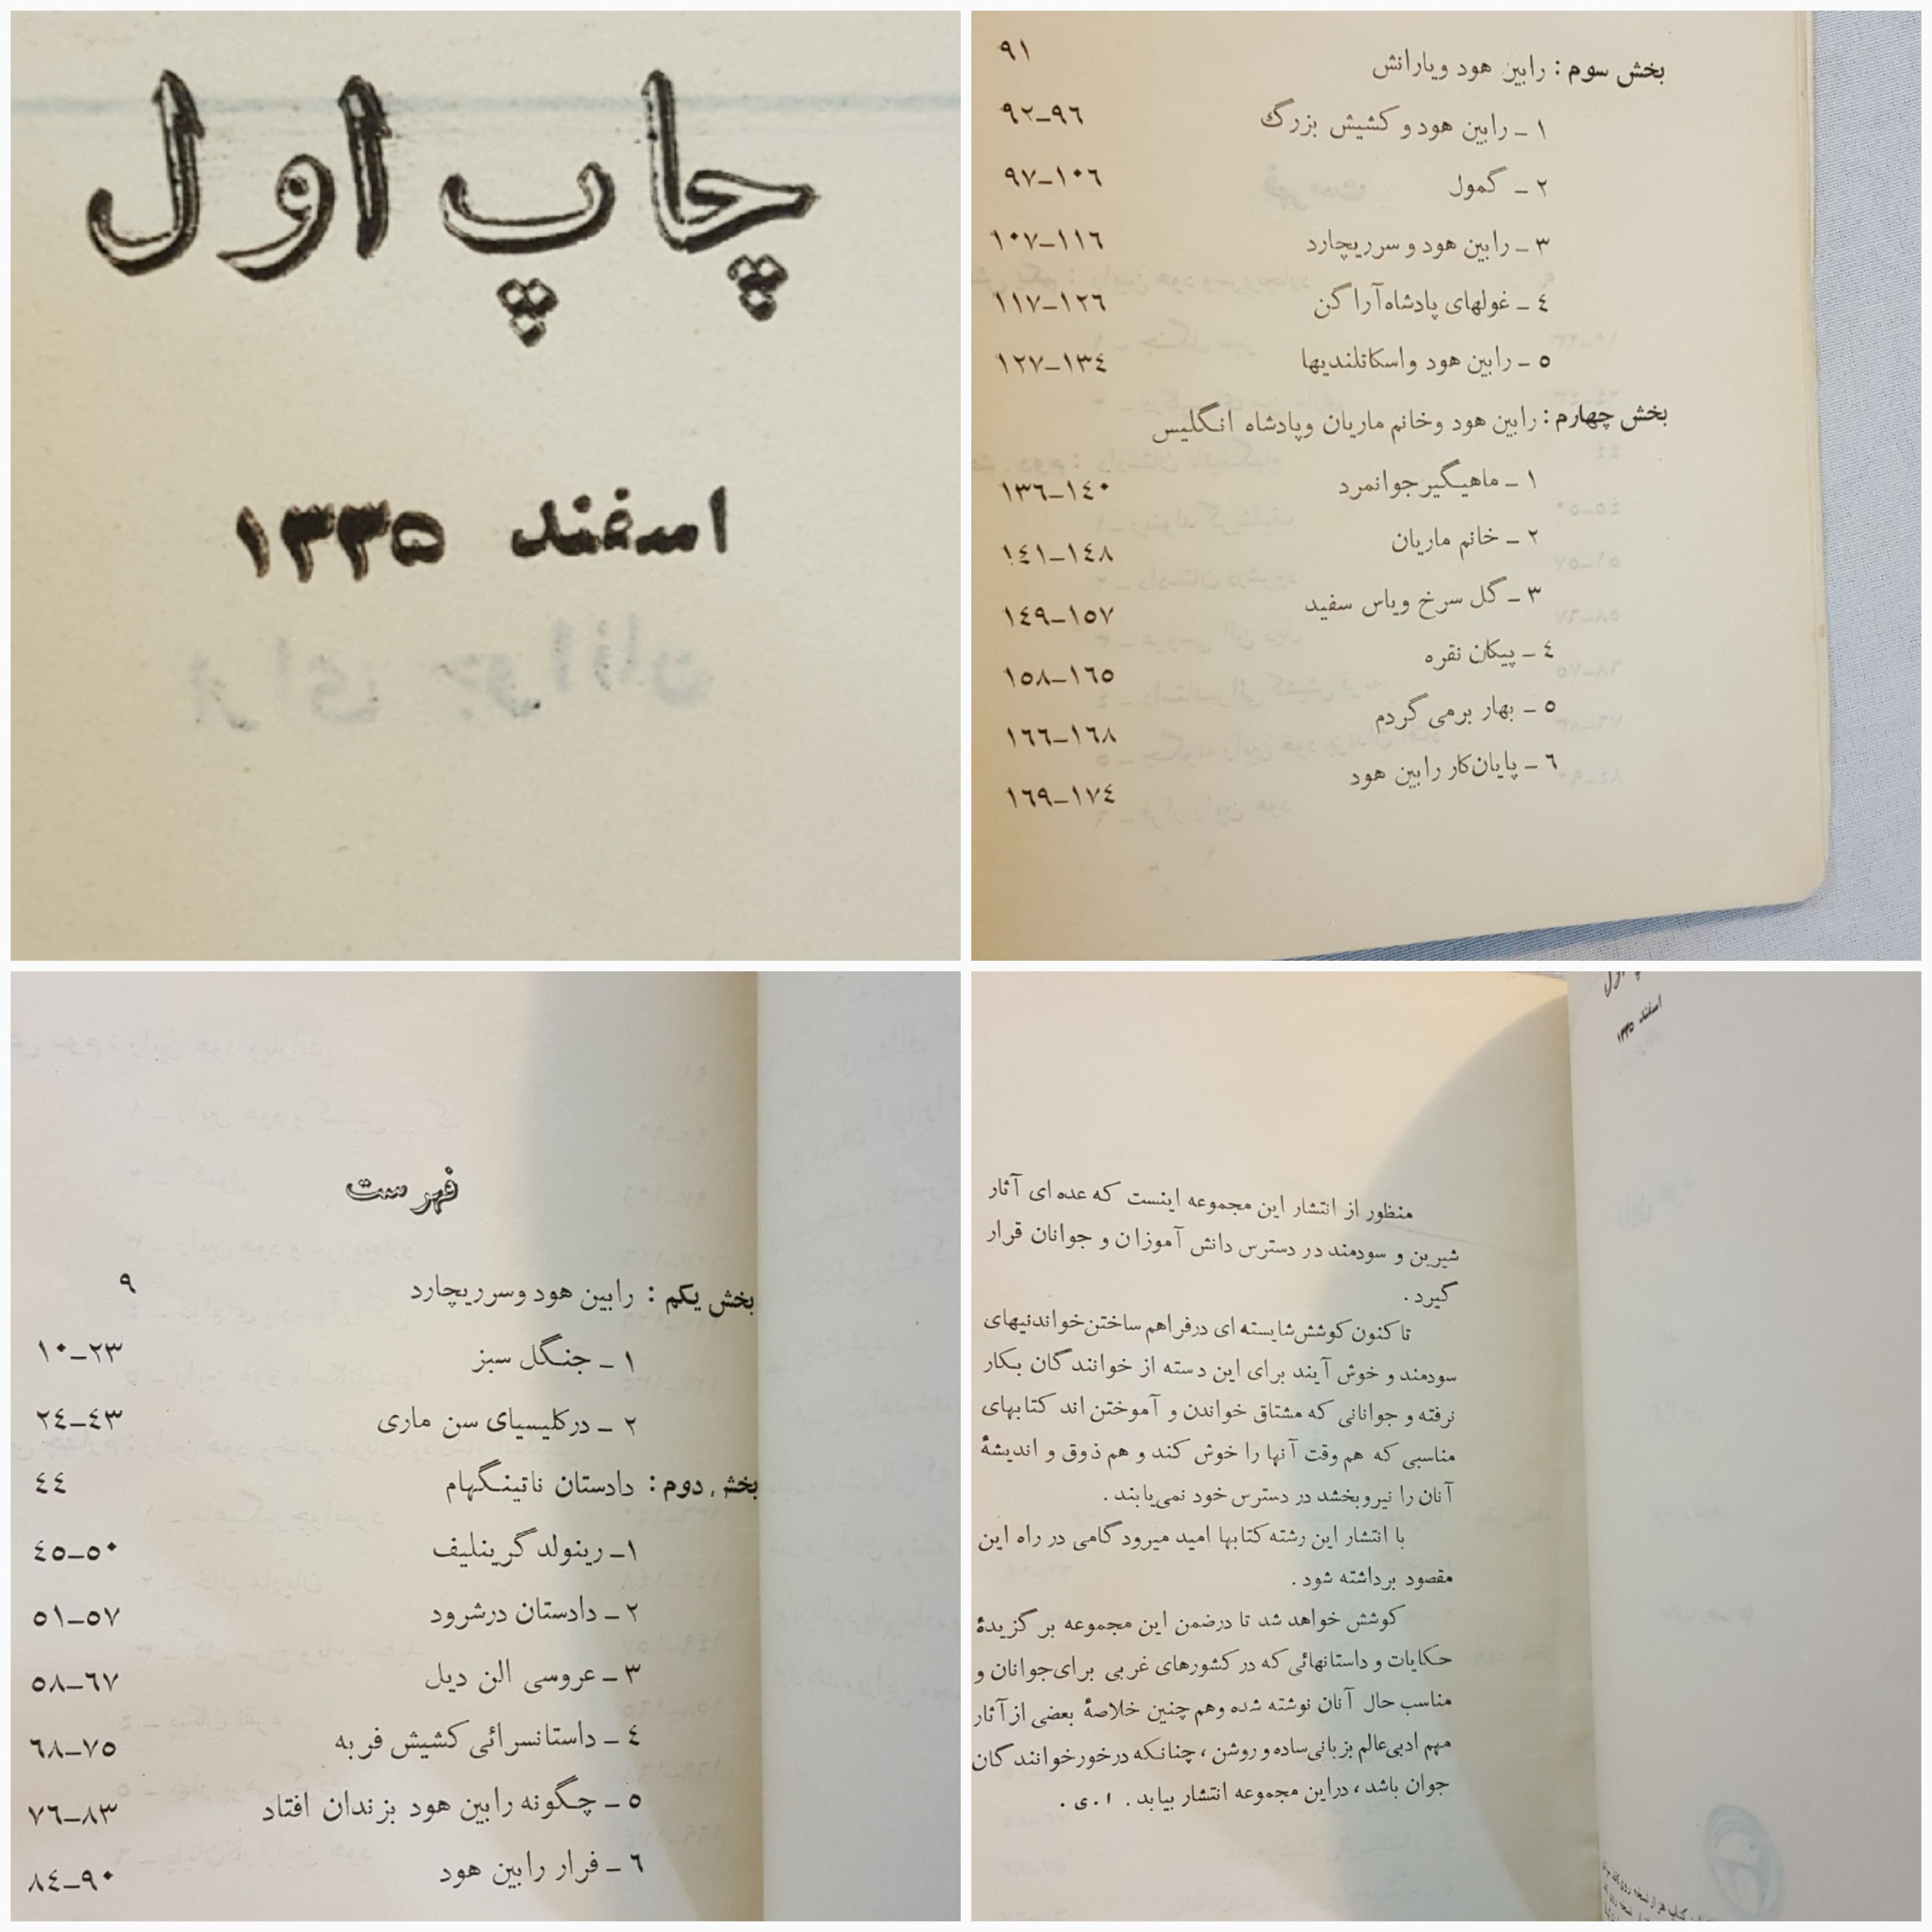 چاپ اول
اسفند ۱۳۳۵
بخش سوم : رابین هود ویارانش ۹۱
۱ ـ رابین هود و کشیش بزرگ ۹۲ـ۹٦
۲ ـ گمول ۹۷ـ۱۰٦
۳ ـ رابین هود و سرریچارد ۱۰۷ـ۱۱٦
٤ ـ غولهای پادشاه آراگن ۱۱۷ـ۱۲٦
٥ ـ رابین هود واسکاتلندیها ۱۲۷ـ۱۳٤
بخش چهارم : رابین هود وخانم ماریان وپادشاه انگلیس
۱ ـ ماهیگیر جوانمرد ۱۳٦ـ۱٤۰
۲ ـ خانم ماریان ۱٤۱ـ۱٤۸
۳ ـ گل سرخ ویاس سفید ۱٤۹ـ۱٥۷
٤ ـ پیکان نقره ۱٥۸ـ۱٦٥
٥ ـ بهار برمی گردم ۱٦٦ـ۱٦۸
٦ ـ پایان کار رابین هود ۱٦۹ـ۱۷٤
فهرست
بخش یکم : رابین هود وسرریچارد ۹
۱ ـ جنگل سبز ۱۰ـ۲۳
۲ ـ درکلیسیای سن ماری ۲٤ـ٤۳
بخش دوم : دادستان ناتینگهام ٤٤
۱ـ رینولد گرینلیف ٤٥ـ٥۰
۲ ـ دادستان درشرود ٥۱ـ٥۷
۳ ـ عروسی الن دیل ٥۸ـ٦۷
٤ ـ داستانسرائی کشیش فربه ٦۸ـ۷٥
٥ ـ چگونه رابین هود بزندان افتاد ۷٦ـ۸۳
٦ ـ فرار رابین هود ۸٤ـ۹۰
اسفند ۱۳۳۵
منظور از انتشار این مجموعه اینست که عده ای آثار
شیرین و سودمند در دسترس دانش آموزان و جوانان قرار
گیرد .
تا کنون کوشش شایسته ای درفراهم ساختن خواندنیهای
سودمند و خوش آیند برای این دسته از خوانندگان بکار
نرفته و جوانانی که مشتاق خواندن و آموختن اند کتابهای
مناسبی که هم وقت آنها را خوش کند و هم ذوق و اندیشهٔ
آنان را نیروبخشد در دسترس خود نمی‌یابند .
با انتشار این رشته کتابها امید میرود گامی در راه این
مقصود برداشته شود .
کوشش خواهد شد تا درضمن این مجموعه برگزیدهٔ
حکایات و داستانهائی که در کشورهای غربی برای جوانان و
مناسب حال آنان نوشته شده وهم چنین خلاصهٔ بعضی از آثار
مهم ادبی عالم بزبانی ساده و روشن ، چنانکه درخورخوانندگان
جوان باشد ، دراین مجموعه انتشار بیابد . ا . ی .